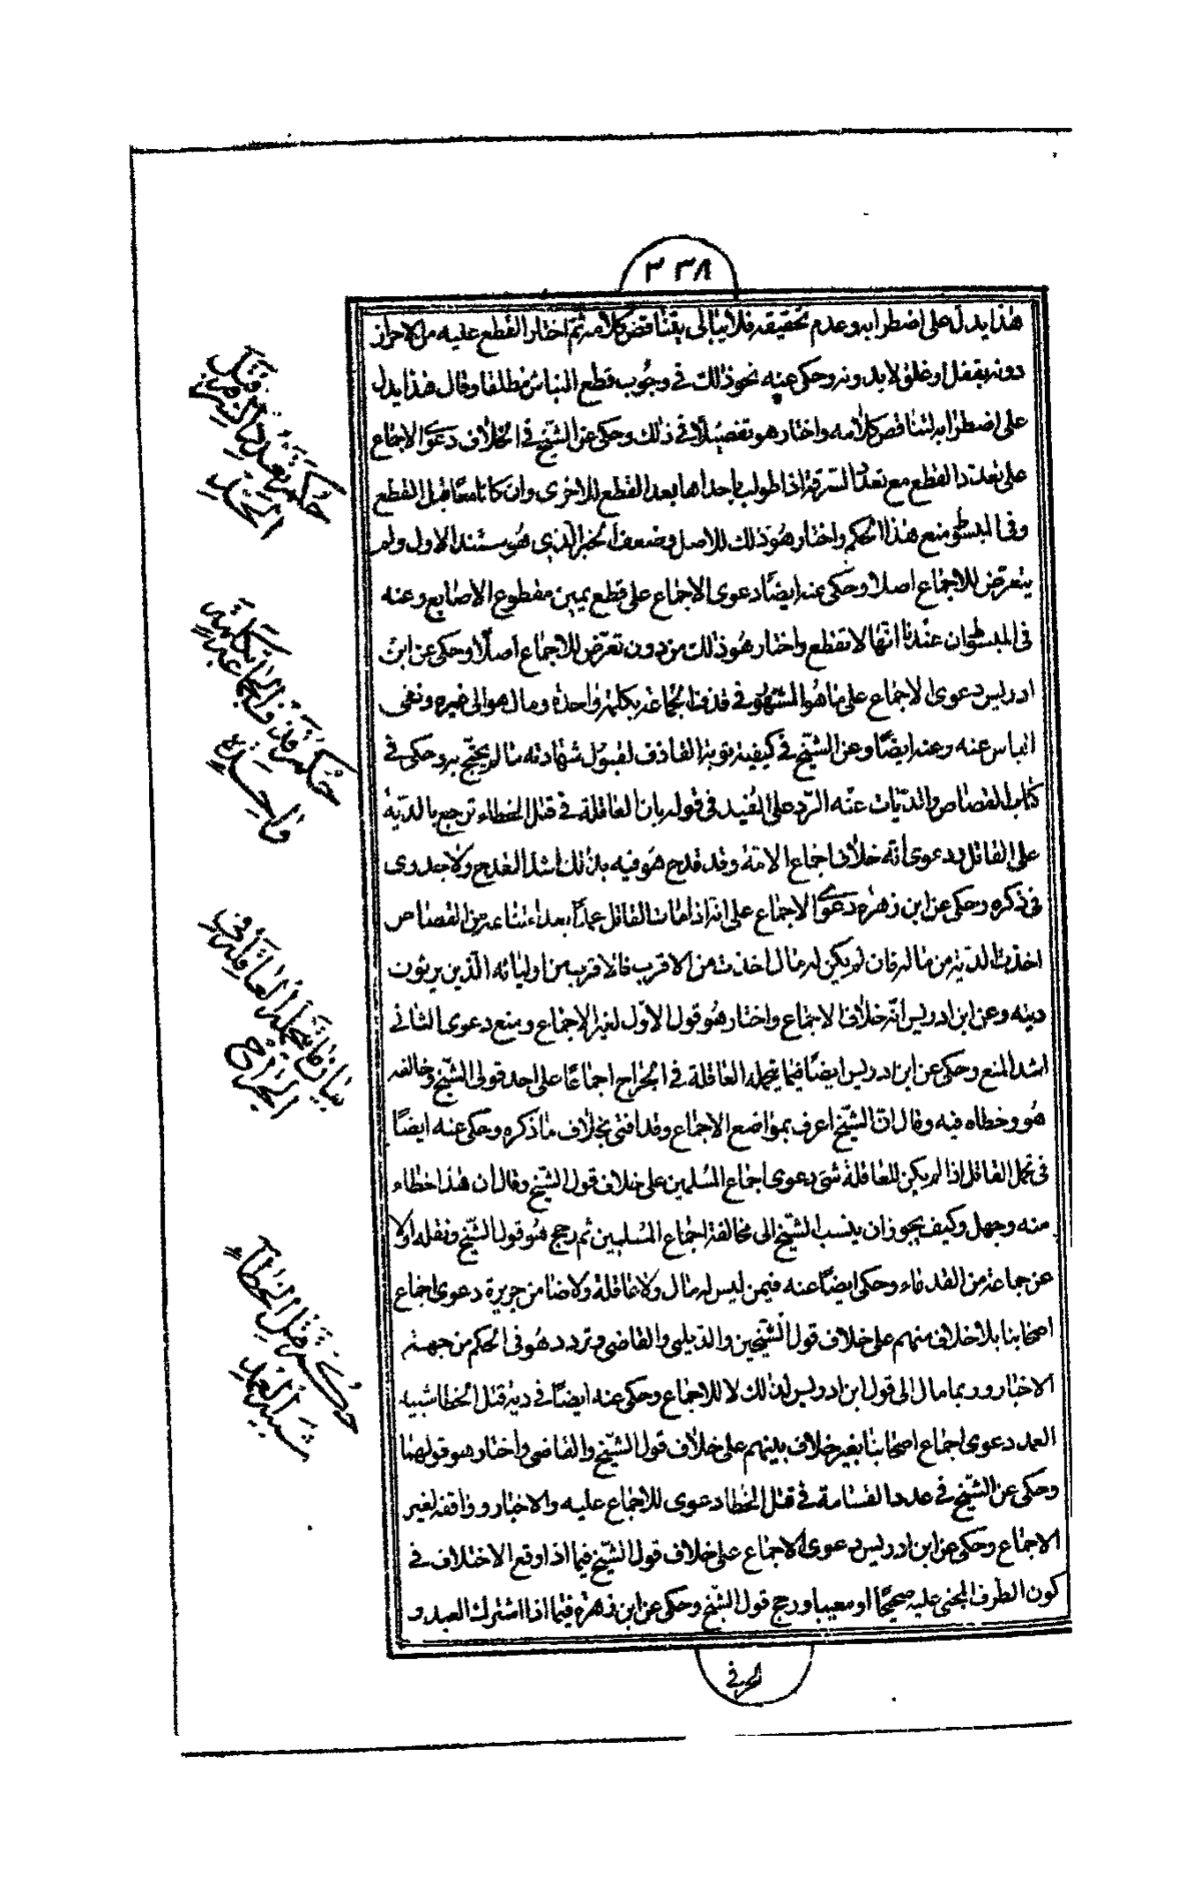 ٣٣٨
هذا يدل على اضطرابه وعدم تحقيقه فلا يبالى بتناقض كلامه ثم اختار القطع عليه من الاحراز
دونه بقفل او غلق لابدونه وحكى عنه نحو ذلك في وجوب قطع النباش مطلقا وقال هذا يدل
على اضطرابه لتناقض كلامه واختار هو تفصيلا في ذلك وحكى عن الشيخ في الخلاف دعوى الاجماع
على تعدد القطع مع تعدد السرقة اذا طولب باحداها بعد القطع للاخرى وان كانا معا قبل القطع
وفي المبسوط منع هذا الحكم واختار هو ذلك للاصل وضعف الخبر الذي هو مستند الاول ولم
يتعرض للاجماع اصلا وحكى عنه ايضا دعوى الاجماع على قطع يمين مقطوع الاصابع وعنه
في المبسوط ان عندنا انها لا تقطع واختار هو ذلك من دون تعرض للاجماع اصلا وحكى عن ابن
ادريس دعوى الاجماع على ما هو المشهور في قذف الجماعة بكلمة واحدة ومال هو الى غيره ونفى
الباس عنه وعنه ايضا وعن الشيخ في كيفية توبة القاذف لقبول شهادته ما لم يحتج به وحكى في
كتاب القصاص والديات عنه الرد على المفيد في قوله بان العاقلة في قتل الخطاء ترجع بالدية
على القاتل بدعوى انه خلاف اجماع الامة وقد قدح هو فيه بذلك اشد القدح ولا جدوى
في ذكره وحكى عن ابن زهرة دعوى الاجماع على انه اذا مات القاتل عمدا بعد امتناعه من القصاص
اخذت الدية من ماله فان لم يكن له مال اخذت من الاقرب فالاقرب من اوليائه الذين يرثون
ديته وعن ابن ادريس انه خلاف الاجماع واختار هو قول الاول لغير الاجماع ومنع دعوى الثاني
اشد المنع وحكى عن ابن ادريس ايضا فيما تحمله العاقلة في الجراح اجماعا على احد قولى الشيخ وخالفه
هو وخطاه فيه وقال ان الشيخ اعرف بمواضع الاجماع وقد افتى بخلاف ما ذكره وحكى عنه ايضا
في تحمل القاتل اذا لم يكن للعاقلة شئ دعوى اجماع المسلمين على خلاف قول الشيخ وقال ان هذا خطاء
منه وجهل وكيف يجوز ان ينسب الشيخ الى مخالفة اجماع المسلمين ثم رجح هو قول الشيخ ونقله اولا
عن جماعة من القدماء وحكى ايضا عنه فيمن ليس له مال ولا عاقلة ولا ضامن جريرة دعوى اجماع
اصحابنا بلا خلاف منهم على خلاف قول الشيخين والديلمى والقاضى وتردد هو في الحكم من جهة
الاخبار وربما مال الى قول ابن ادريس لذلك لا للاجماع وحكى عنه ايضا في دية قتل الخطا شبيه
العمد دعوى اجماع اصحابنا بغير خلاف بينهم على خلاف قول الشيخ والقاضى واختار هو قولهما
وحكى عن الشيخ في عدد القسامة في قتل الخطا دعوى للاجماع عليه والاخبار ووافقه لغير
الاجماع وحكى عن ابن ادريس دعوى الاجماع على خلاف قول الشيخ فيما اذا وقع الاختلاف في
كون الطرف المجنى عليه صحيحا او معيبا ورجح قول الشيخ وحكى عن ابن زهرة فيما اذا اشترك العبد و
الحر في
حكم تعدد السرقة قبل
الحد
حكم قذف الجماعة بكلمة
واحدة
بيان ما تحمله العاقلة في
الجراح
حكم قتل الخطاء
شبيه العمد